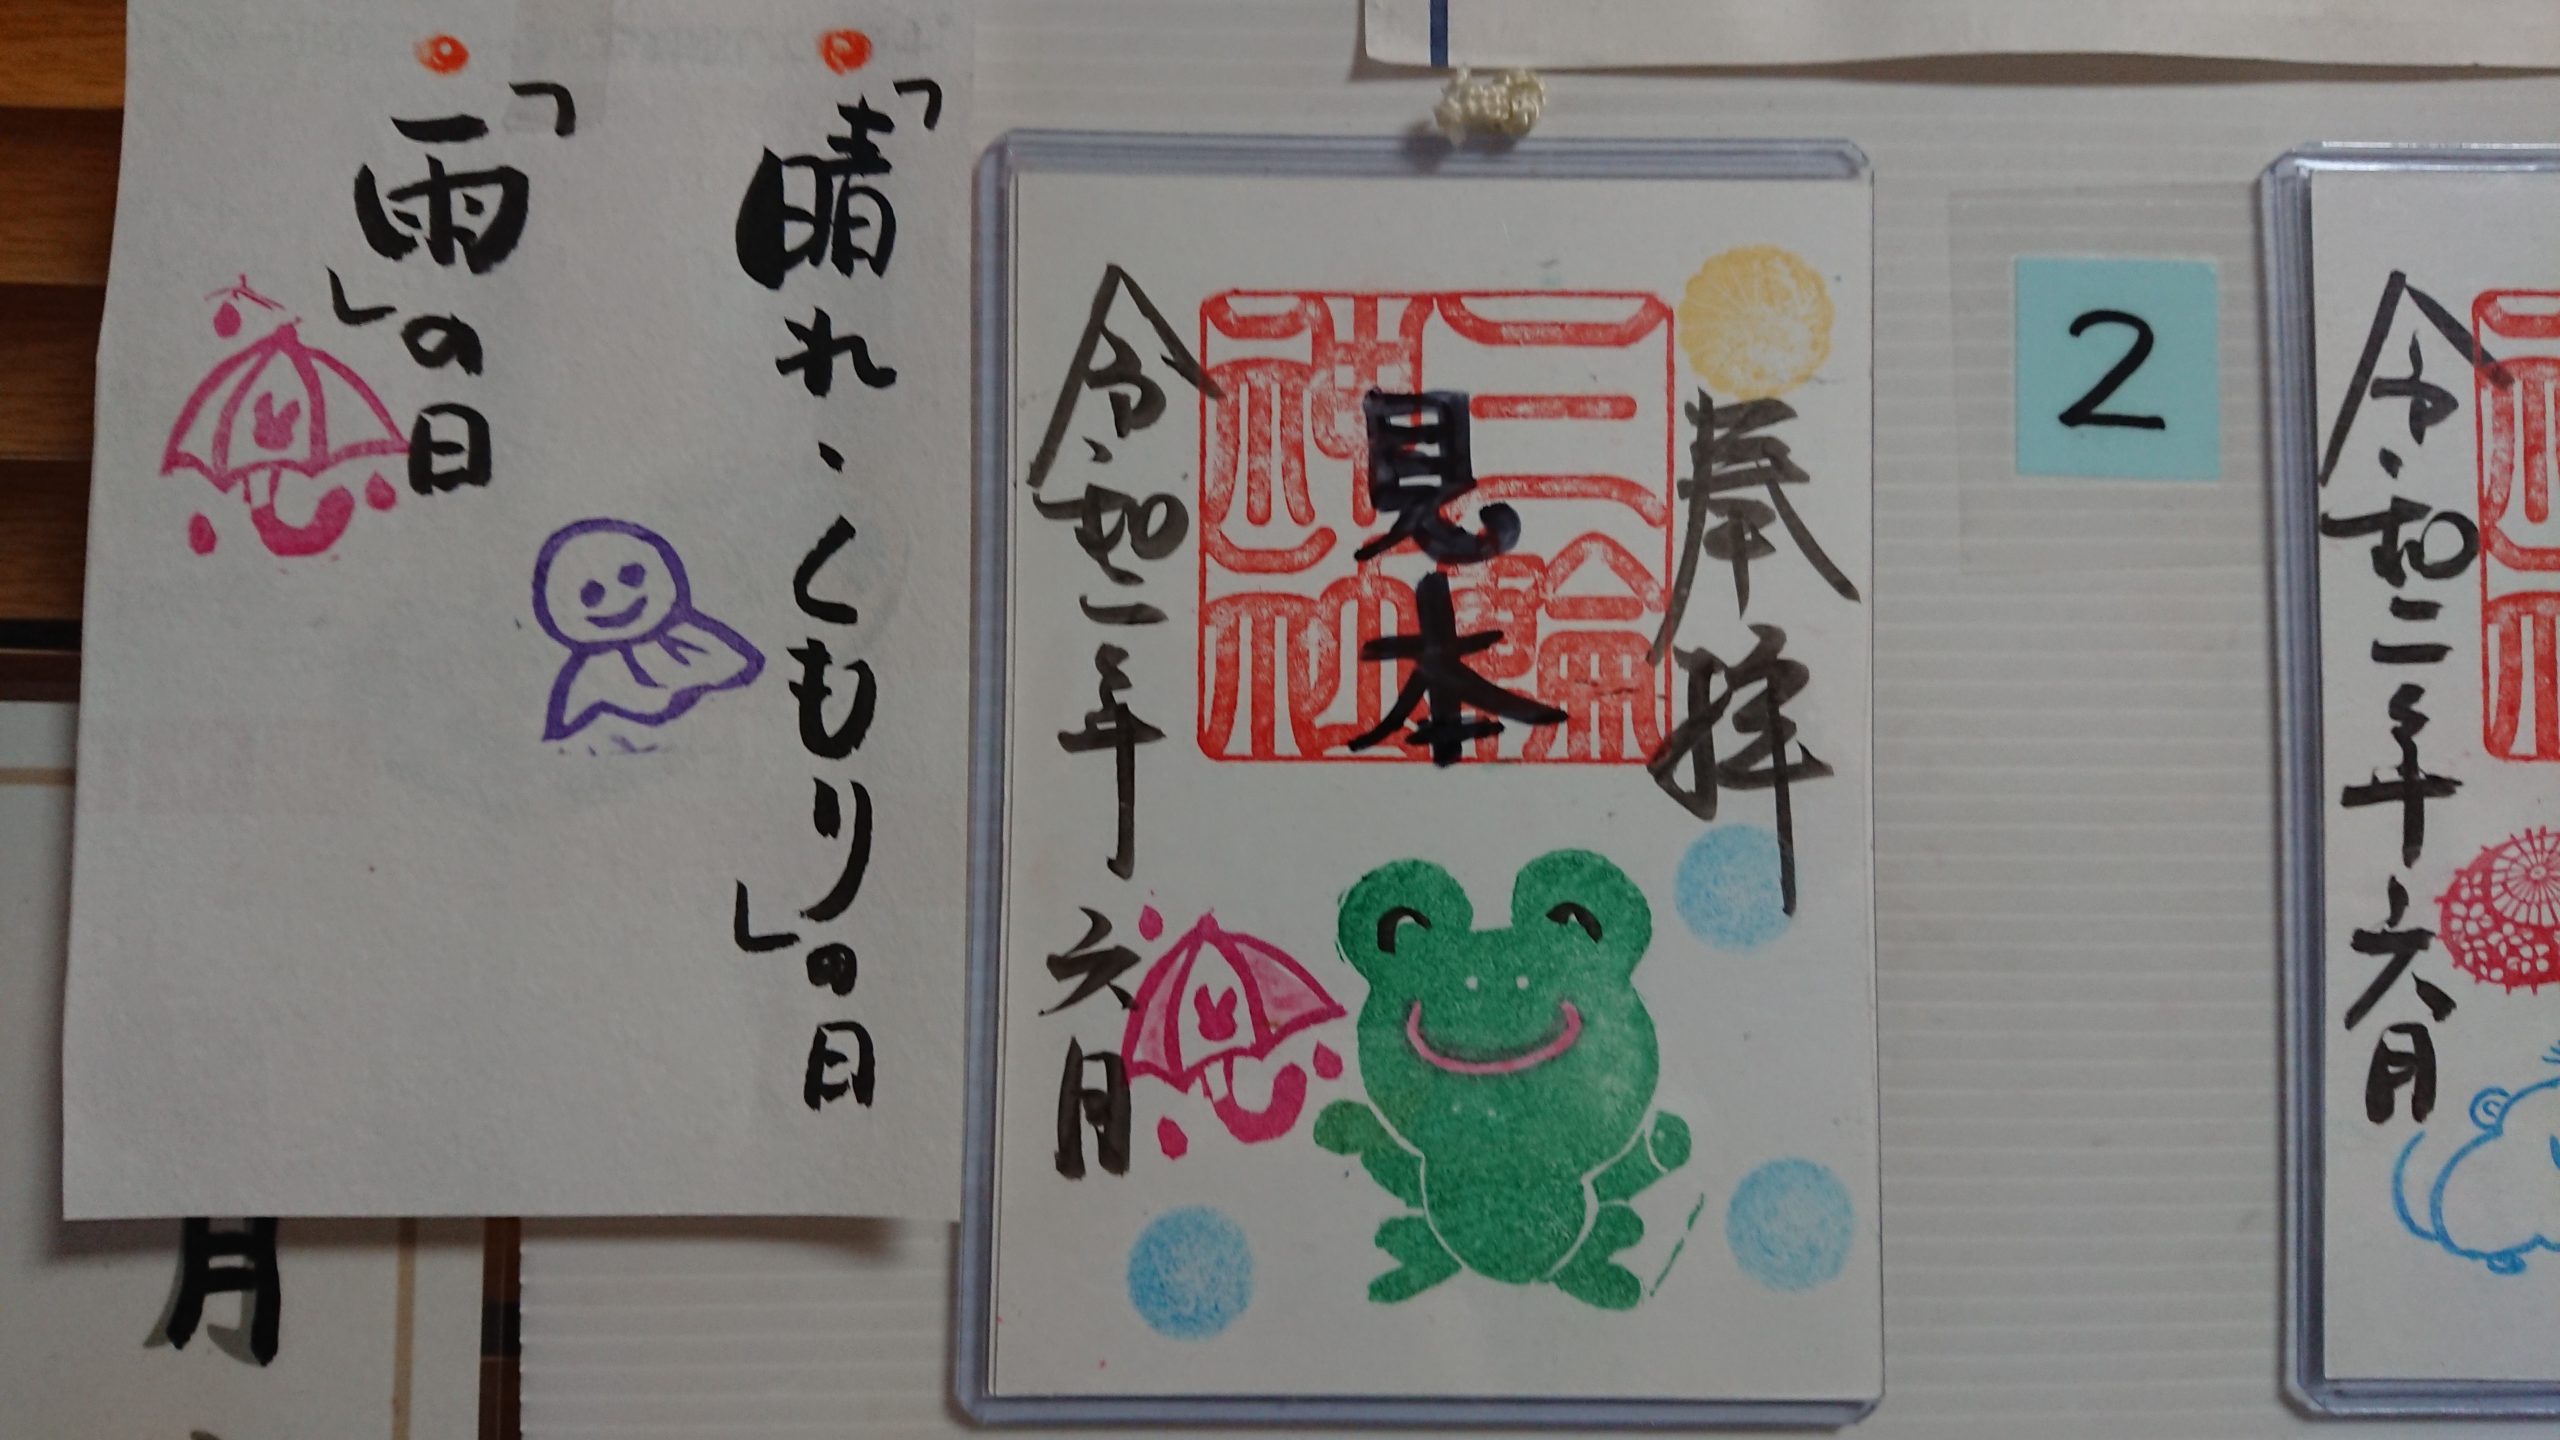 「晴れ・くもり」の日
「雨」の日
奉拝
三輪神社
見本
令和二年 六月
2
令和二年 六月
月